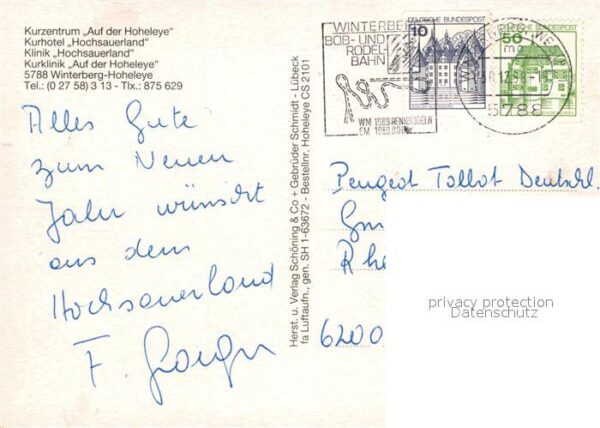 Kurzentrum „Auf der Hoheleye"
Kurhotel „Hochsauerland"
Klinik „Hochsauerland"
Kurklinik „Auf der Hoheleye"
5788 Winterberg-Hoheleye
Tel.: (0 27 58) 3 13 - Tlx.: 875 629
Alles Gute
zum Neuen
Jahr wünscht
aus dem
Hochsauerland
F.
Herst. u. Verlag Schöning & Co + Gebrüder Schmidt - Lübeck
fa Luftaufn., gen. SH 1-63672 - Bestellnr. Hoheleye CS 2101
WINTERBE
BOB- UND
RODEL-
BAHN
WM 1989 RENNRODELN
EM 1989 BOB
10
DEUTSCHE BUNDESPOST
50
DEUTSCHE BUNDESPOST
5788
Peugeot Talbot Deutschl.
Gm
Rhe
6200
privacy protection
Datenschutz